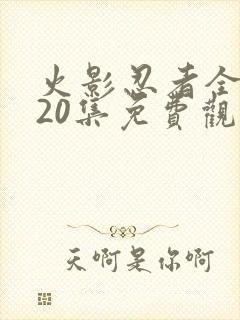 火影忍者全
20集免費觀
天啊是你啊